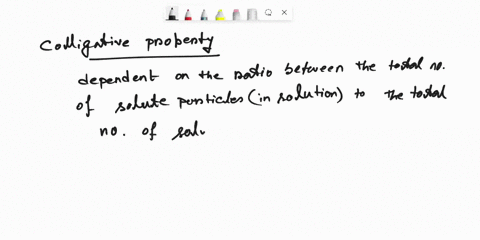 Colligative property
dependent on the ratio between the total no.
of solute particles (in solution) to the total
no. of sol